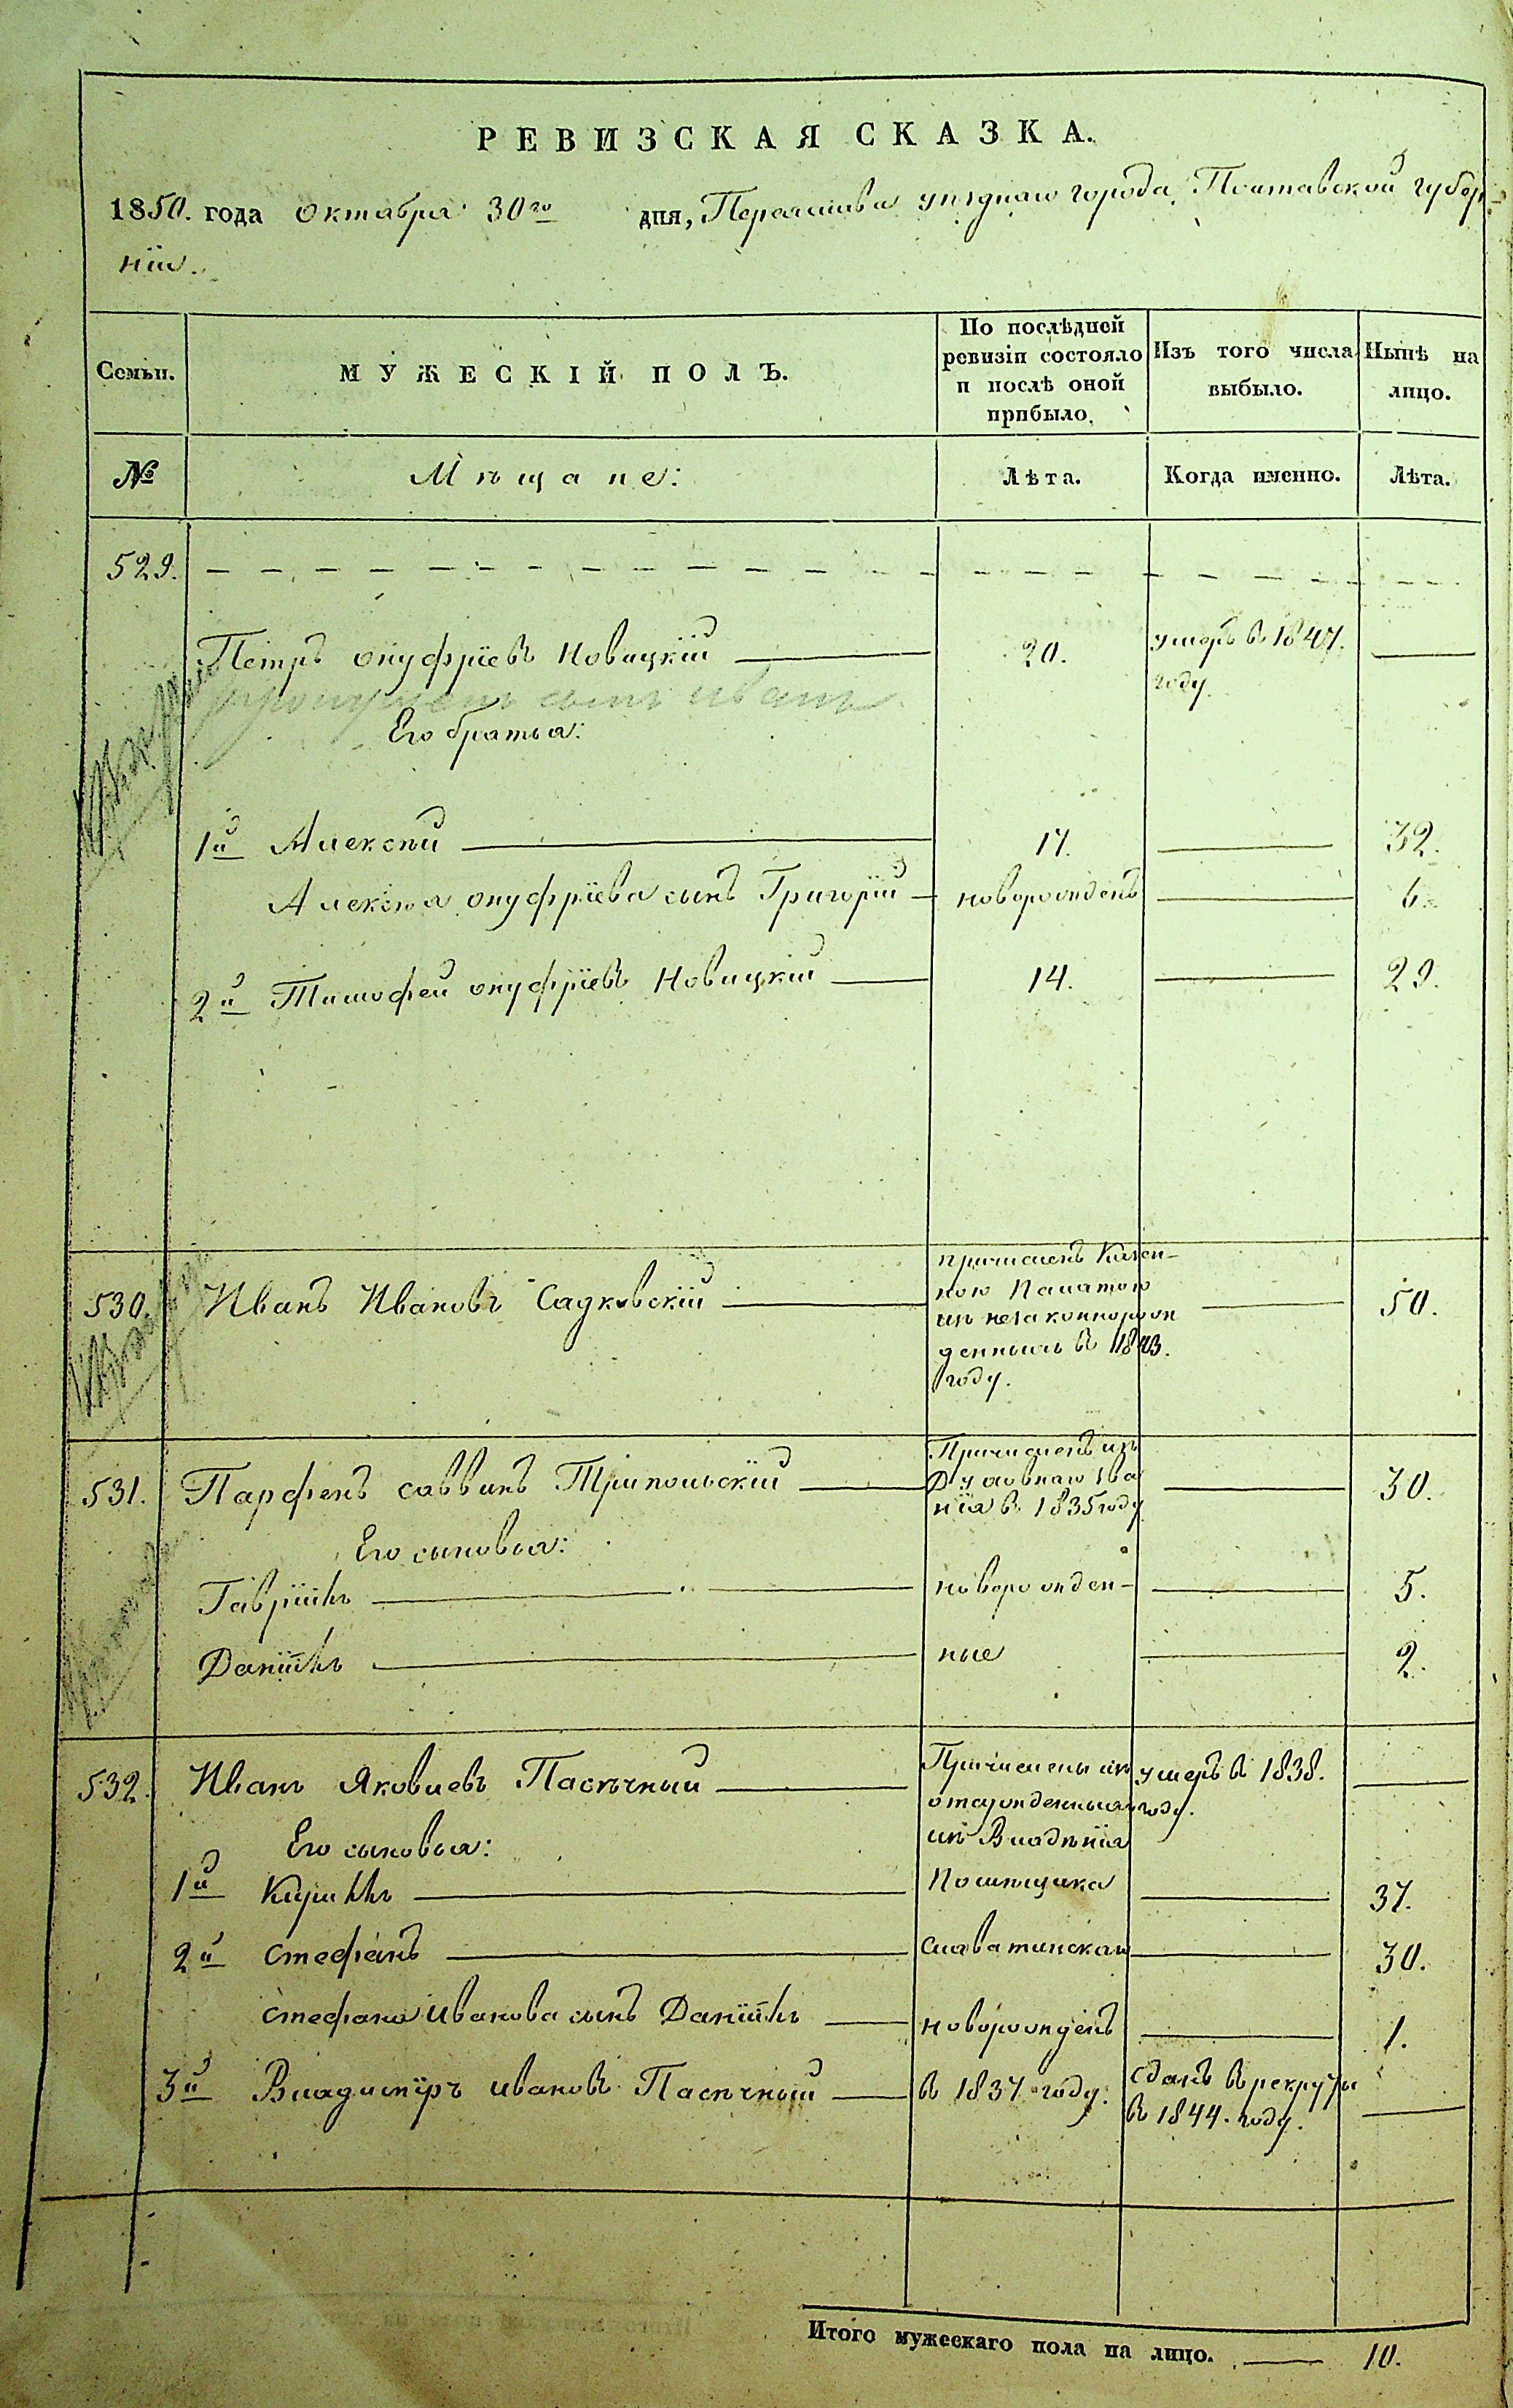 РЕВИЗСКАЯ СКАЗКА.
1850. года октября 30го дня, Переяслава уѣзднаго города, Полтавской губер-
нiи.
Семьи.
МУЖЕСКIЙ ПОЛЪ.
По послѣдней
ревизiи состояло
и послѣ оной
прибыло.
Изъ того числа
выбыло.
Нынѣ на
лицо.
№
Мѣщане:
Лѣта.
Когда именно.
Лѣта.
529.
Петръ онуфрiевъ Новицкiй 20. умеръ в 1847.
году.
сынъ иванъ
Его братья:
1й Алексѣй 17. 32.
Алексѣя онуфрiева сынъ Григорiй новорожденъ 6.
2й Тимофей онуфрiевъ Новицкiй 14. 29.
530. Иванъ Ивановъ Садковскiй 50.
причисленъ Казен-
ною Палатою
изъ незаконнорож
денныхъ в 1843.
году.
531. Парфенъ саввинъ Трипольскiй 30.
Причисленъ изъ
Духовнаго Зва
нiя в 1835 году
Его сыновья:
Гаврiилъ новорожден- 5.
Данiилъ ные 2.
532. Иванъ Яковлевъ Пасѣчный
Причислены изъ умеръ в 1838.
отсужденныхъ году.
изъ Владѣнiя
Его сыновья:
1й Кириллъ Помѣщика 37.
2й стефанъ 30.
стефана иванова сынъ Данiилъ новорожденъ 1.
3й Владимiръ ивановъ Пасѣчный в 1837 году. сданъ в рекруты
в 1844. году.
Итого мужескаго пола на лицо. 10.